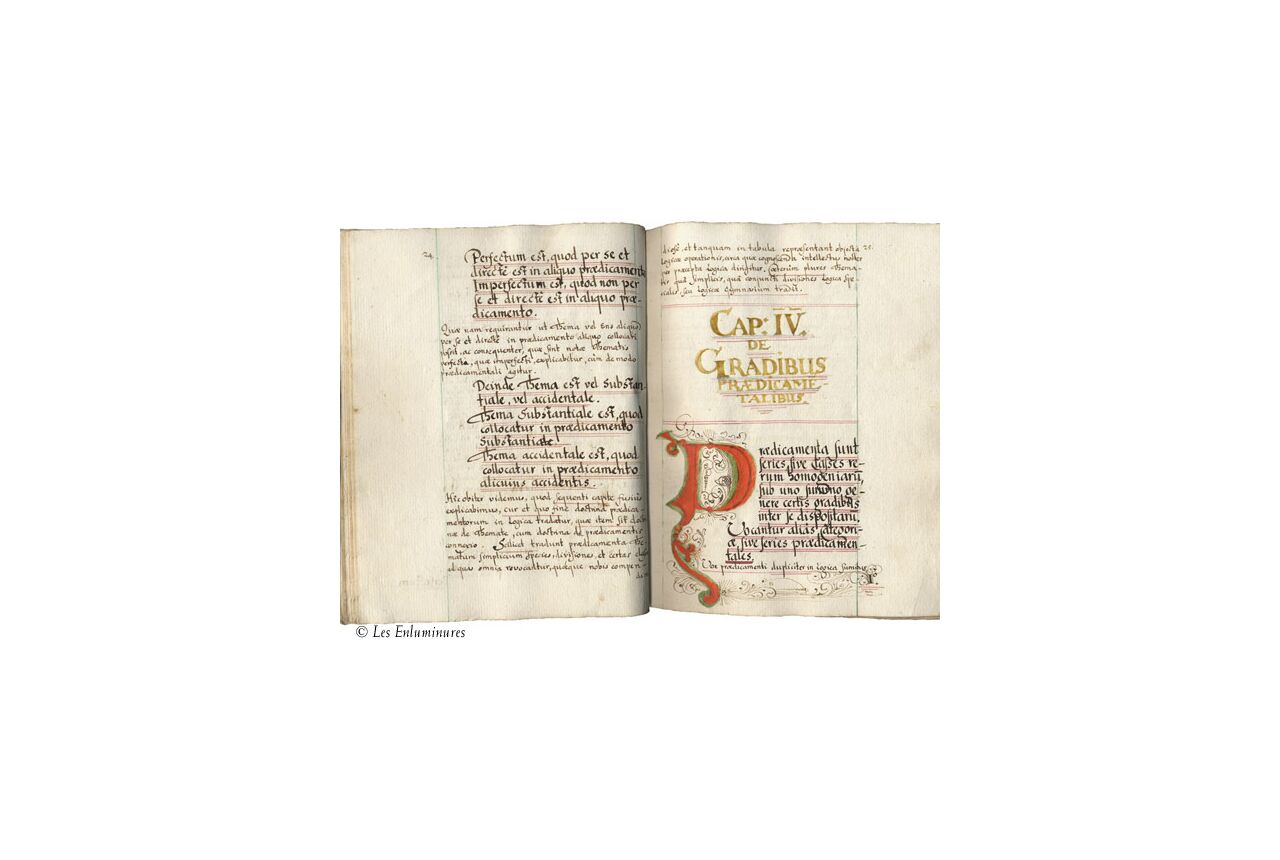 24.
Perfectum est, quod per se et
directè est in aliquo prædicamento
Imperfectum est, quod non per
se et directè est in aliquo præ-
dicamento.
Quæ nam requirantur ut Thema vel Ens aliquod
per se et directè in prædicamento aliquo collocari
possit, ac consequenter, quæ sint notæ Thematis
perfecti, quæ imperfecti, explicabitur, cùm de modo
prædicamentali agitur.
Deinde Thema est vel Substan-
tiale, vel accidentale.
Thema Substantiale est, quod
collocatur in prædicamento
Substantiæ.
Thema accidentale est, quod
collocatur in prædicamento
alicuius accidentis.
Hic obiter videmus, quod sequenti capite fusius
explicabimus, cur et quo fine doctrina prædica-
mentorum in Logica tradatur, quæ item sit doctri-
næ de Themate, cum doctrina de prædicamentis
connexio. Scilicet tradunt prædicamenta The-
matum simplicium species, divisiones, et certas classes
ad quas omnia revocantur, quæque nobis compen-
dio
diosè, et tanquam in tabula repræsentant objecta 25.
Logicæ operationis, circa quæ cognoscenda intellectus noster
per præcepta Logica dirigitur. Cæterum plures Thema-
tis quà simplicis, quà conjuncti divisiones Logica spe-
cialis, seu Logicæ Gymnasium tradit.
CAP: IV.
DE
GRADIBUS
PRÆDICAMĒ-
TALIBUS.
Prædicamenta sunt
series, sive Classes re-
rum homogeniarū,
sub uno summo ge-
nere certis gradibus
inter se dispositarū.
Vocantur alias categori-
æ, sive series prædicamen-
tales.
Vox prædicamenti dupliciter in Logica sumitur